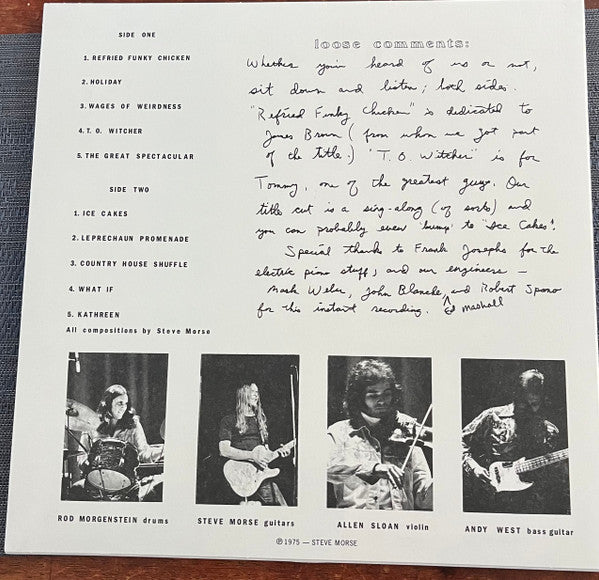 SIDE ONE
1. REFRIED FUNKY CHICKEN
2. HOLIDAY
3. WAGES OF WEIRDNESS
4. T. O. WITCHER
5. THE GREAT SPECTACULAR
SIDE TWO
1. ICE CAKES
2. LEPRECHAUN PROMENADE
3. COUNTRY HOUSE SHUFFLE
4. WHAT IF
5. KATHREEN
All compositions by Steve Morse
loose comments:
Whether you've heard of us or not,
sit down and listen; both sides.
"Refried Funky Chicken" is dedicated to
James Brown (from whom we got part
of the title.) "T. O. Witcher" is for
Tommy, one of the greatest guys. Our
title cut is a sing-along (of sorts) and
you can probably even 'bump' to "Ice Cakes".
Special thanks to Frank Josephs for the
electric piano stuff; and our engineers —
Mark Weber, John Blanche, and Robert Spano
for this instant recording. Ed Marshall
ROD MORGENSTEIN drums
STEVE MORSE guitars
ALLEN SLOAN violin
ANDY WEST bass guitar
℗ 1975 — STEVE MORSE